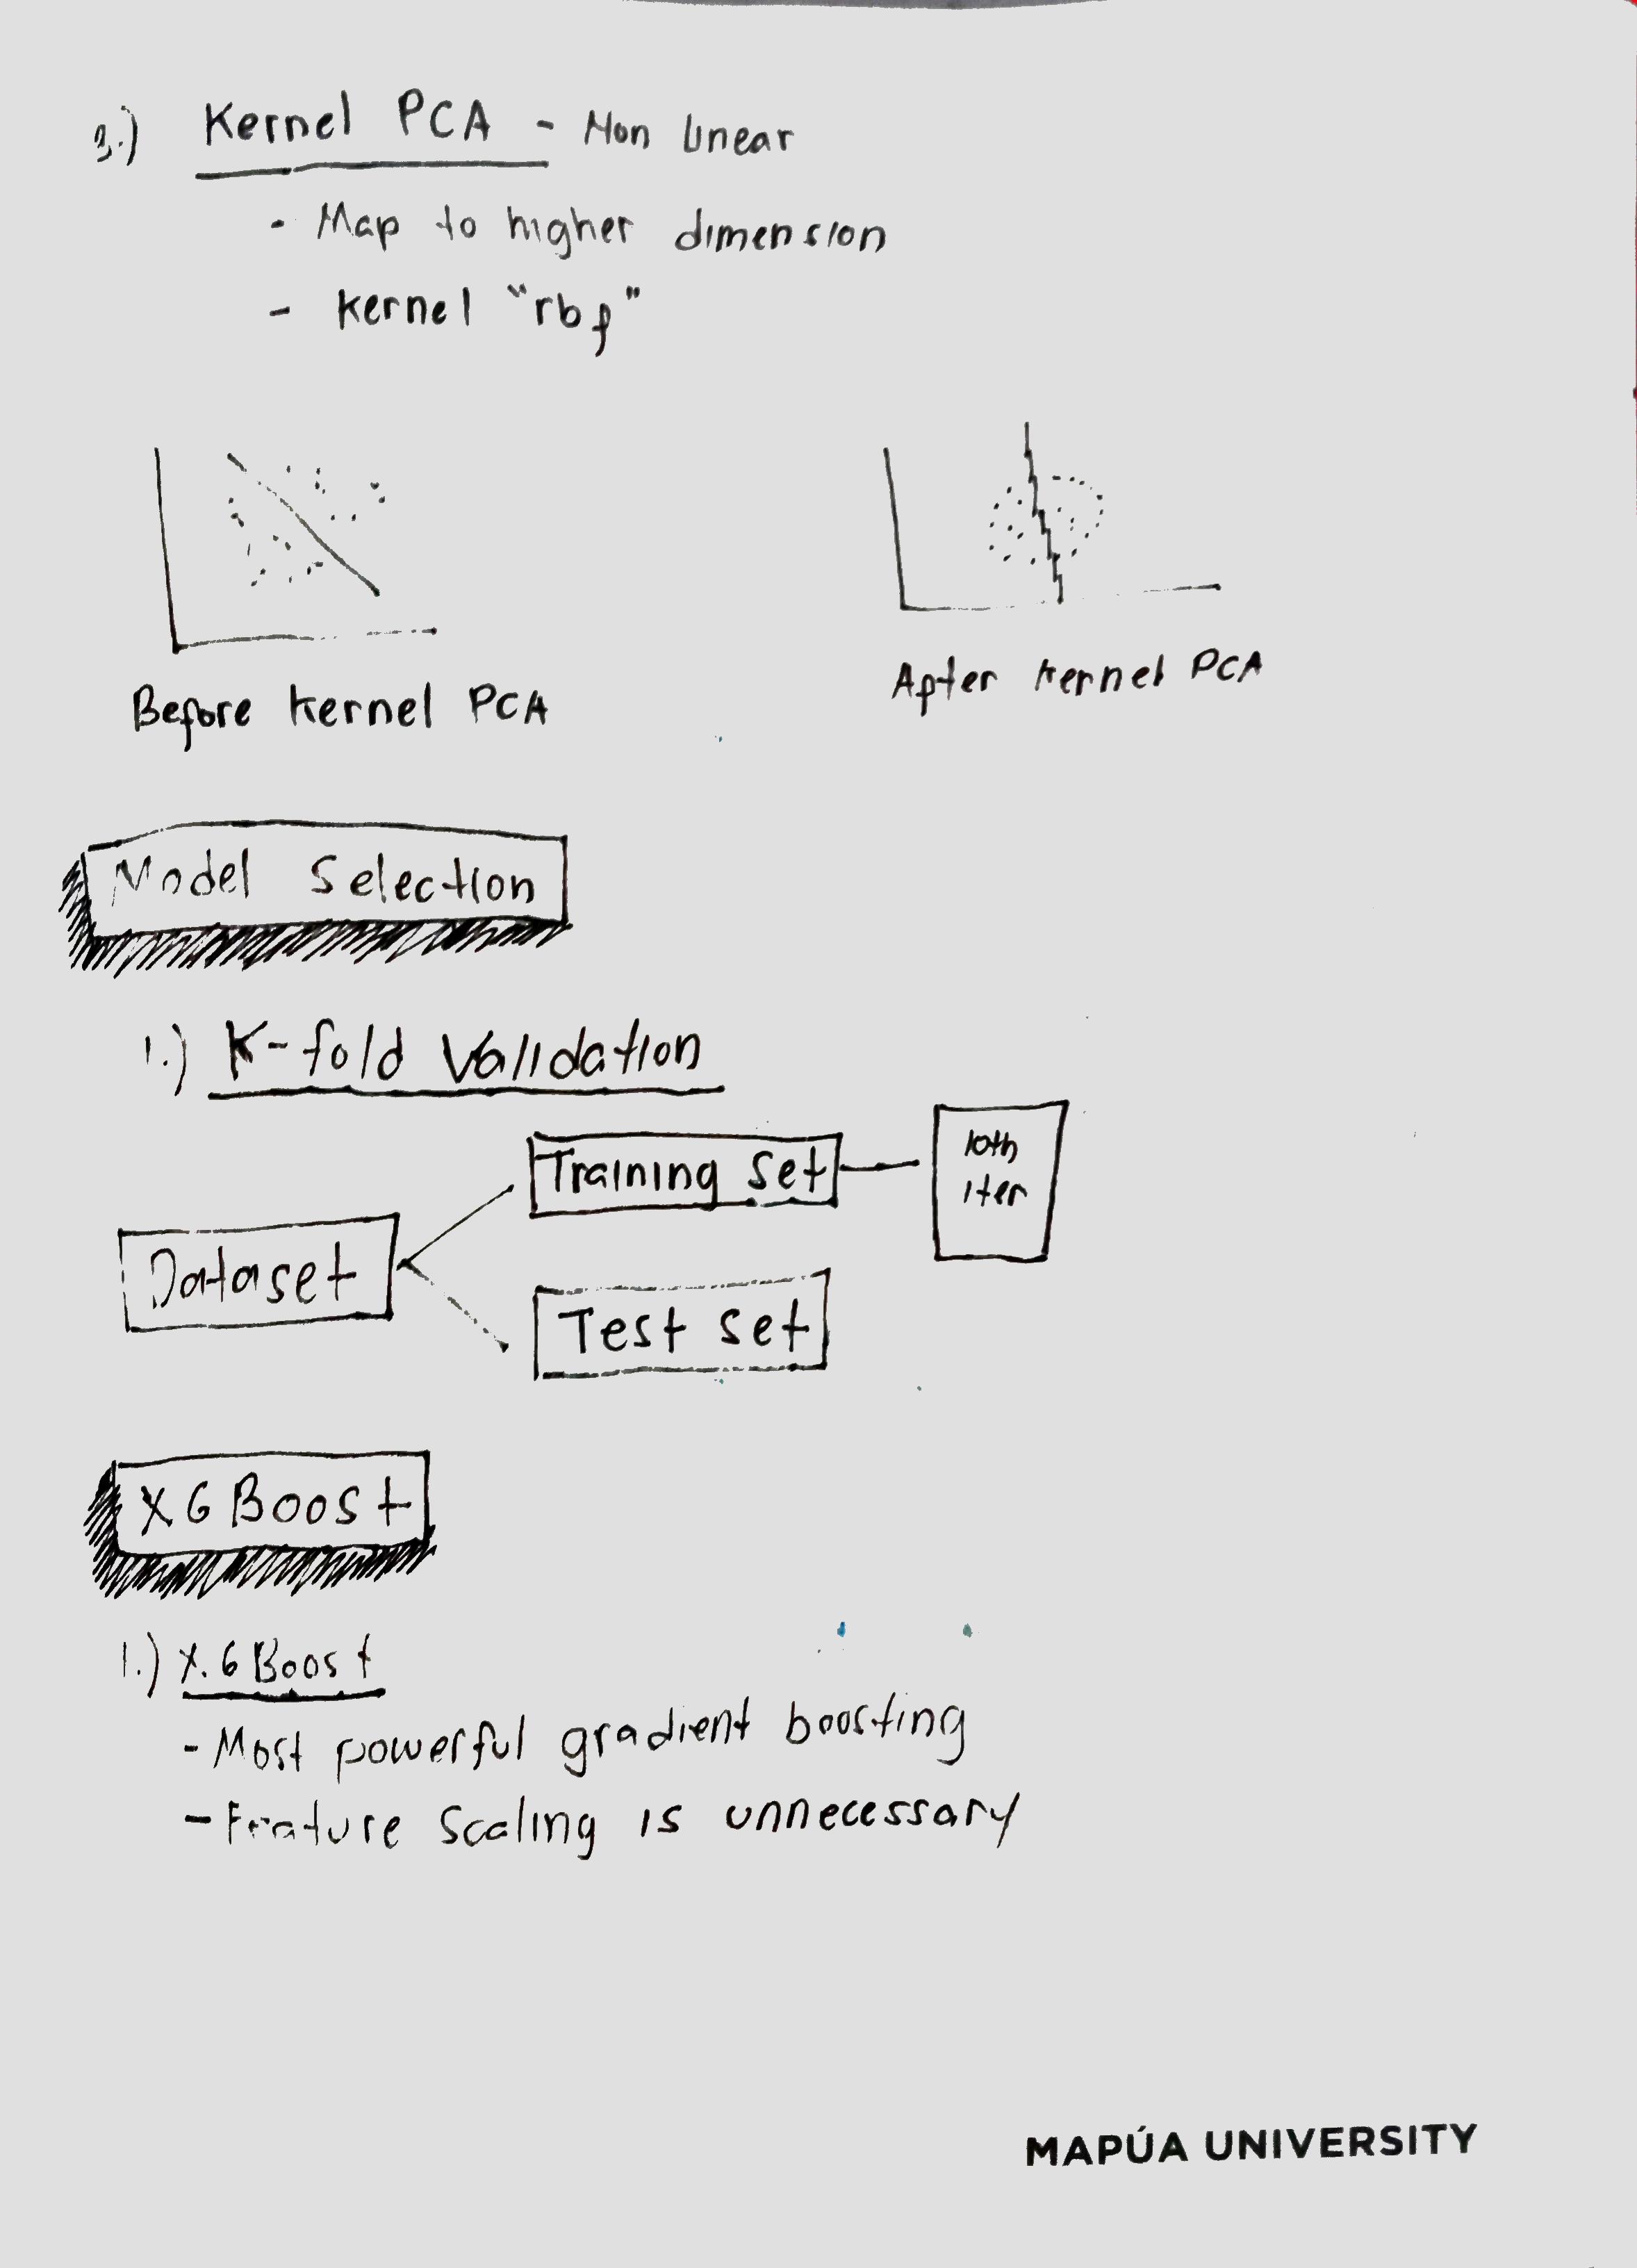 3.) Kernel PCA - Non linear
- Map to higher dimension
- Kernel "rbf"
Before Kernel PCA
After Kernel PCA
Model Selection
1.) K-fold Validation
Training Set
10th
iter
Dataset
Test Set
XGBoost
1.) X.GBoost
- Most powerful gradient boosting
- Feature Scaling is unnecessary
MAPÚA UNIVERSITY